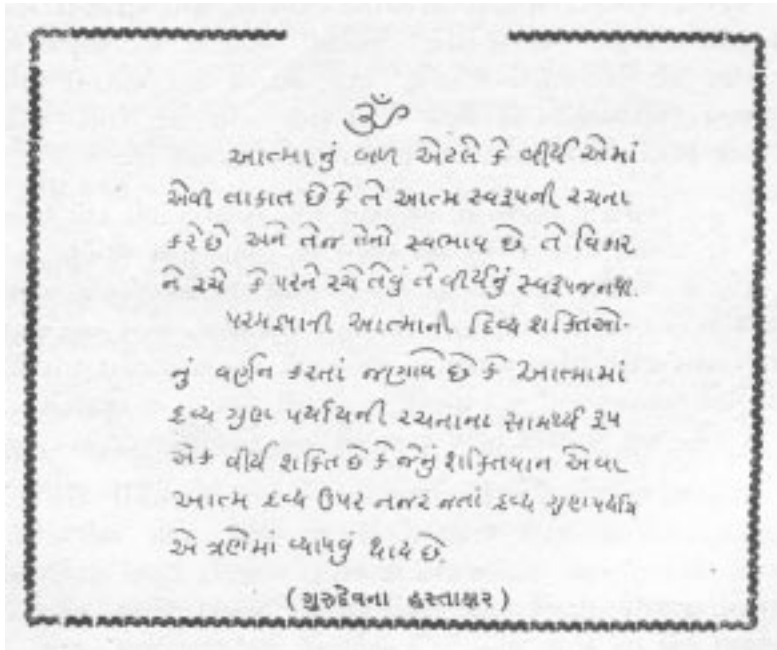 ૐ
આત્માનું બળ એટલે કે વીર્ય એમાં
એવી તાકાત છે કે તે આત્મ સ્વરૂપની રચના
કરે છે અને તેજ તેનો સ્વભાવ છે તે વિકાર
ને રચે કે પરને રચે તેવું તે વીર્યનું સ્વરૂપજ નથી.
પરમજ્ઞાની આત્માની દિવ્ય શક્તિઓ-
નું વર્ણન કરતાં જણાવે છે કે આત્મામાં
દ્રવ્ય ગુણ પર્યાયની રચનાના સામર્થ્ય રૂપ
એક વીર્ય શક્તિ છે કે જેનું શક્તિવાન એવા
આત્મ દ્રવ્ય ઉપર નજર જતાં દ્રવ્ય ગુણ પર્યાય
એ ત્રણેમાં વ્યાપવું થાય છે
(ગુરુદેવના હસ્તાક્ષર)